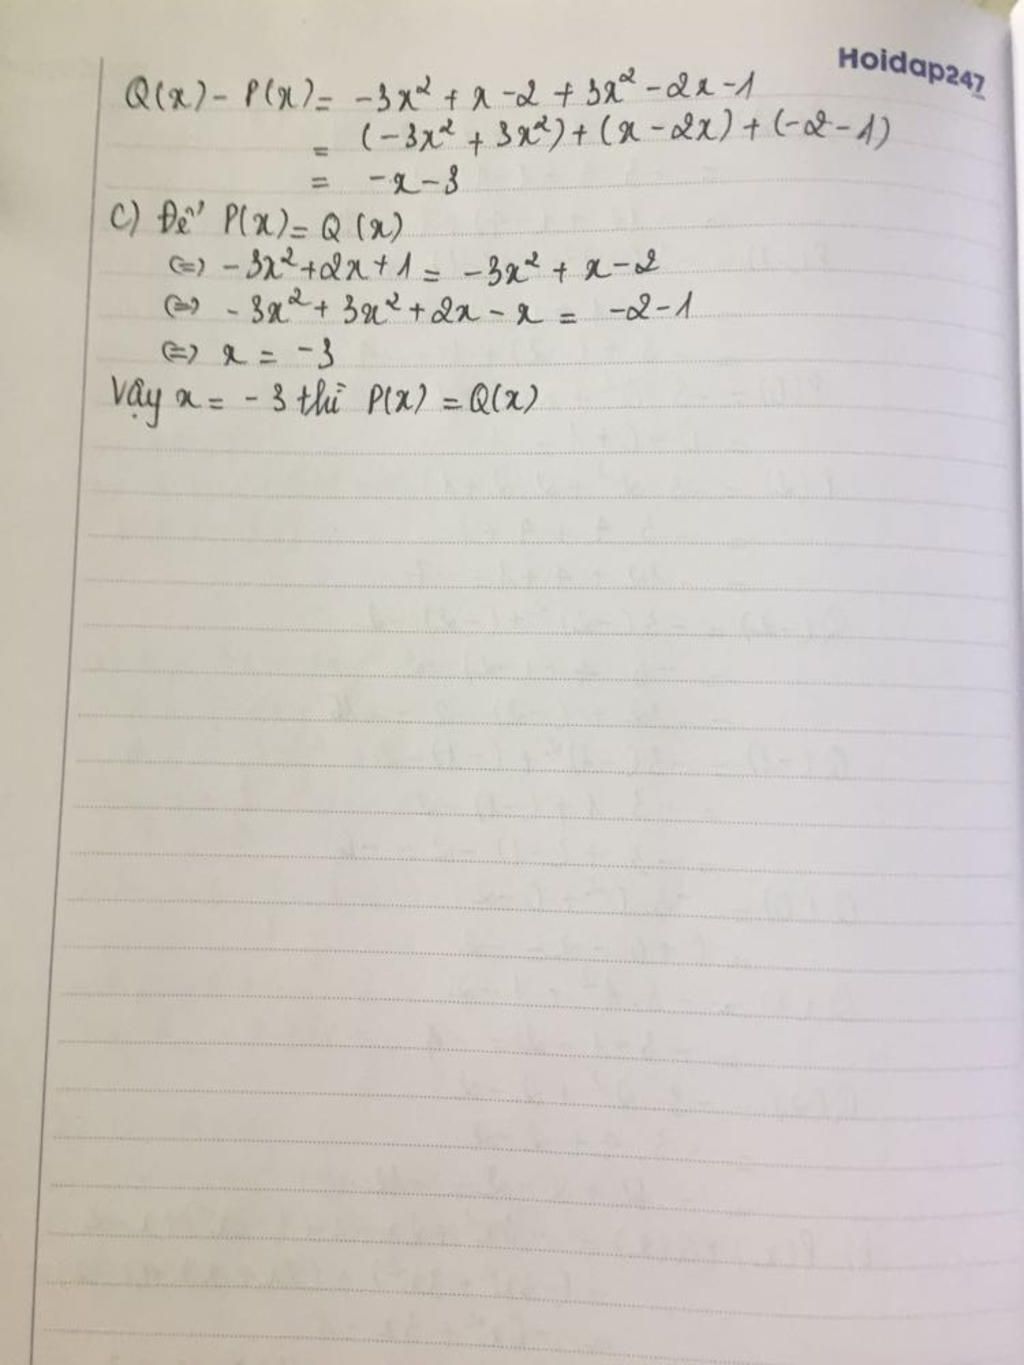 Hoidap247
Q(x) - P(x) = -3x² + x - 2 + 3x² - 2x - 1
= (-3x² + 3x²) + (x - 2x) + (-2 - 1)
= -x - 3
C) Để P(x) = Q(x)
(=) -3x² + 2x + 1 = -3x² + x - 2
(=) -3x² + 3x² + 2x - x = -2 - 1
(=) x = -3
Vậy x = -3 thì P(x) = Q(x)